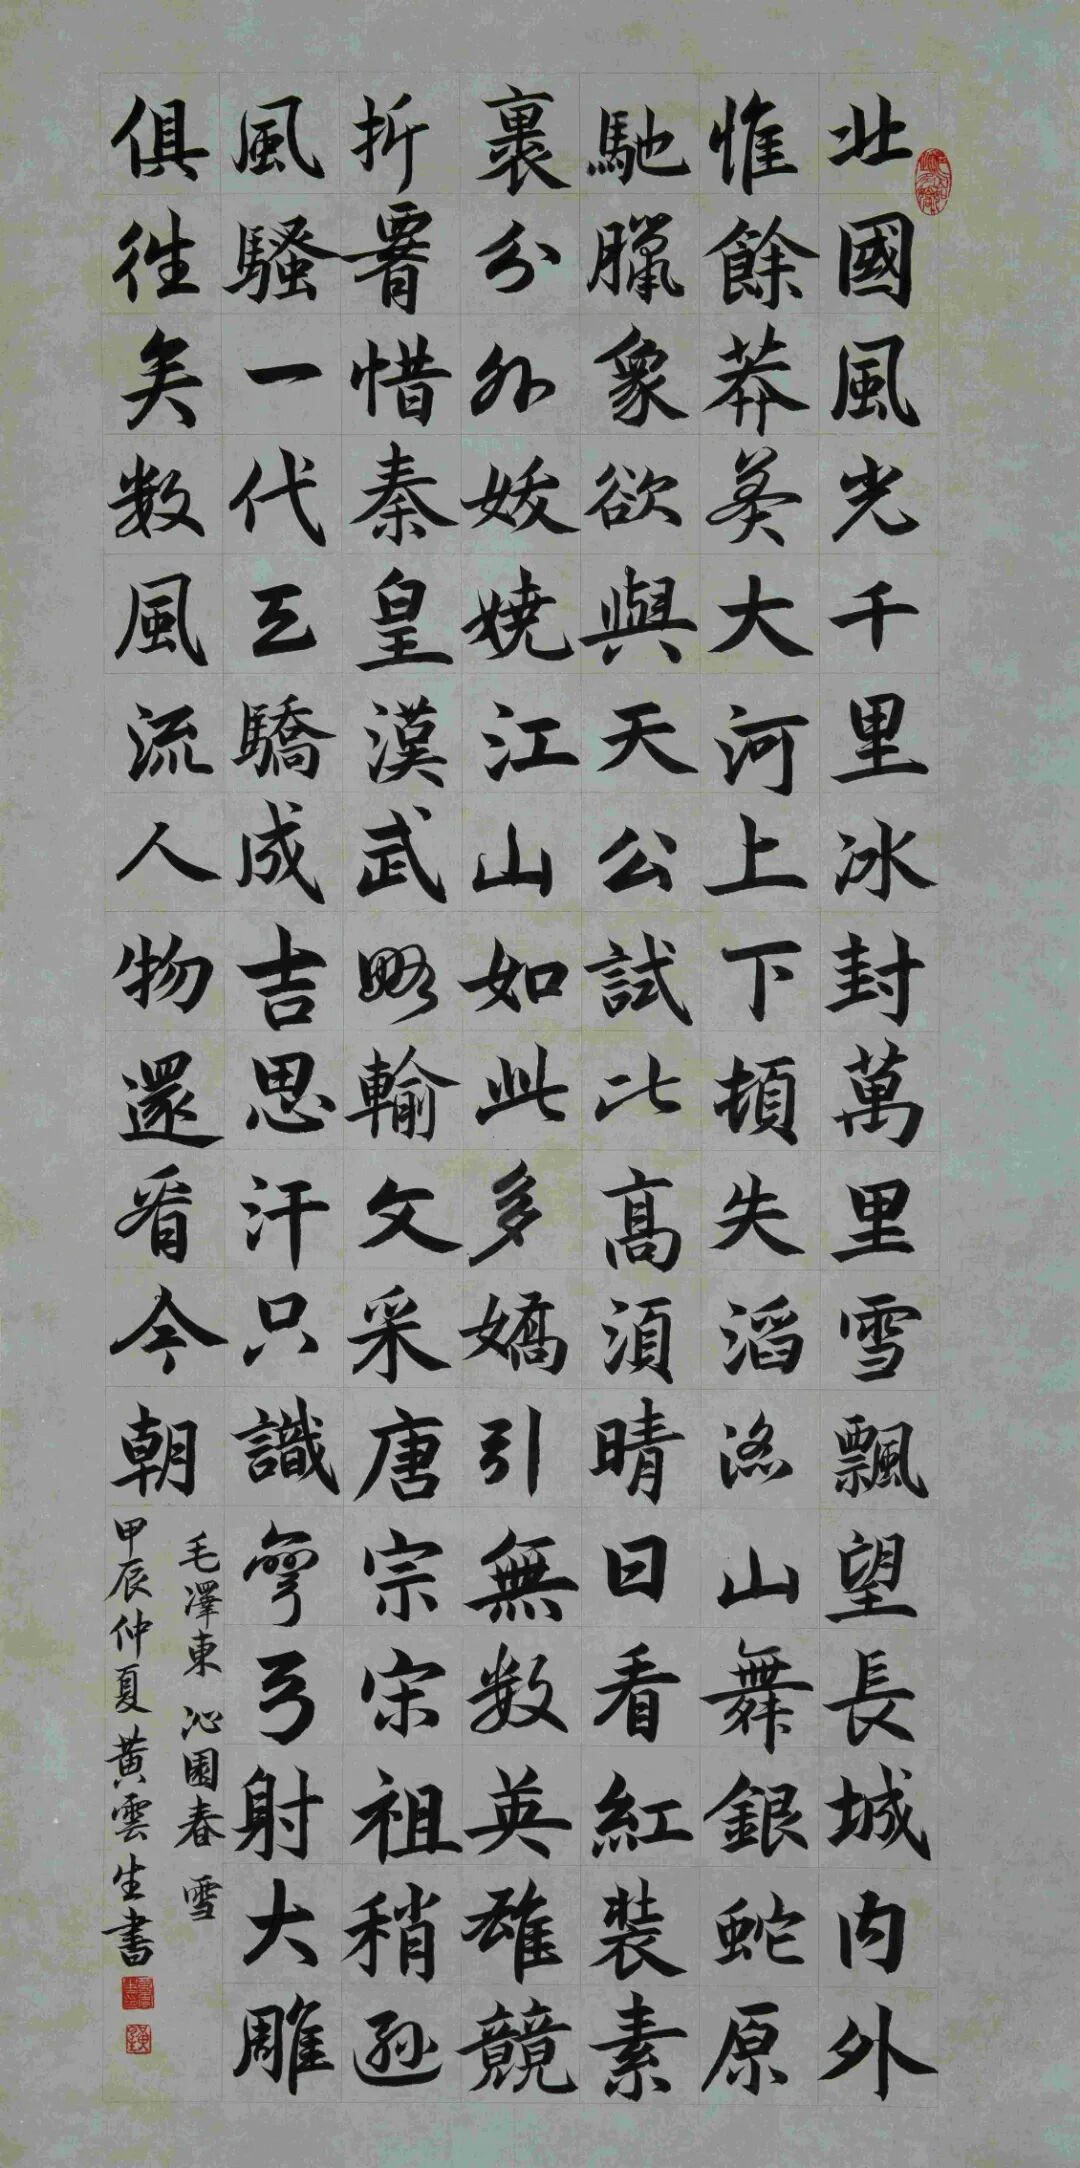 北國風光千里冰封萬里雪飄望長城内外
惟餘莽莽大河上下頓失滔滔山舞銀蛇原
馳臘象欲與天公試比高須晴日看紅裝素
裹分外妖娆江山如此多嬌引無数英雄競
折腰惜秦皇漢武略輸文采唐宗宋祖稍遜
風騷一代天驕成吉思汗只識彎弓射大雕
俱往矣数風流人物還看今朝
毛澤東 沁園春 雪
甲辰仲夏黄雲生書